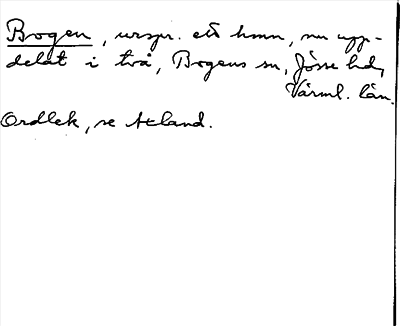 Bogen, urspr. ett hmn, nu upp-
delat i två, Bogens sn, Jösse hd,
Värml. län.
Ordlek, se Atland.